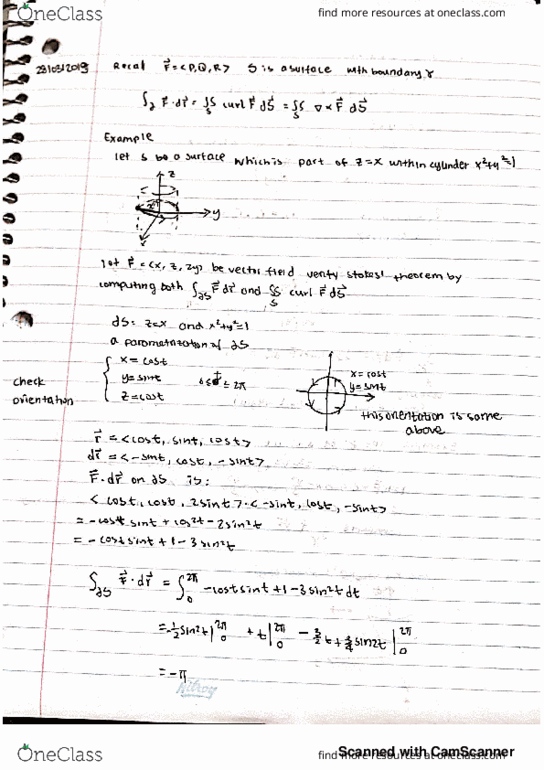 OneClass
find more resources at oneclass.com
28/03/2019 Recal F⃗=<P,Q,R> S is a surface with boundary γ
∫_γ F⃗·dr⃗ = ∬_S curl F⃗ dS⃗ = ∬_S ∇×F⃗ dS⃗
Example
let s be a surface which is part of z=x within cylinder x²+y²=1
z
y
x
let F⃗ = <x, z, 2y> be vector field verify stokes' theorem by
computing both ∫_∂S F⃗ dr⃗ and ∬_S curl F⃗ dS⃗
∂S: z=x and x²+y²=1
a parametrization of ∂S
x = cost
y = sint 0≤t≤2π
z = cost
check
orientation
x = cost
y = sint
this orientation is same
above
r⃗ = <cost, sint, cost>
dr⃗ = <-sint, cost, -sint>
F⃗·dr⃗ on ∂S is:
<cost, cost, 2sint>·<-sint, cost, -sint>
= -cost sint + cos²t - 2sin²t
= -cost sint + 1 - 3 sin²t
∫_∂S F⃗·dr⃗ = ∫_0^2π -cost sint + 1 - 3 sin²t dt
= -½ sin²t |_0^2π + t |_0^2π - 3/2 t + 3/4 sin2t |_0^2π
= -π
Hilroy
OneClass
find more resources at oneclass.com
Scanned with CamScanner